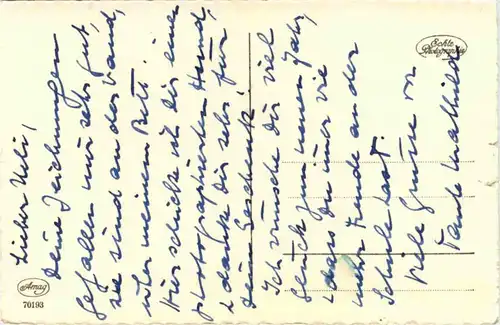 Lieber Uli,
Deine Zeichnungen
gefallen mir sehr gut,
sie sind an der Wand,
über meinem Bett.
Hier schicke ich Dir einen
photographierten Hund,
& danke Dir sehr für
dein Geschenk!
Ich wünsche Dir viel
Glück zum neuen Jahr,
& dass Du immer viel
mehr Freude an der
Schule hast.
Viele Grüsse von
Tante Mathilde
Echte
Photographie
Amag
70193